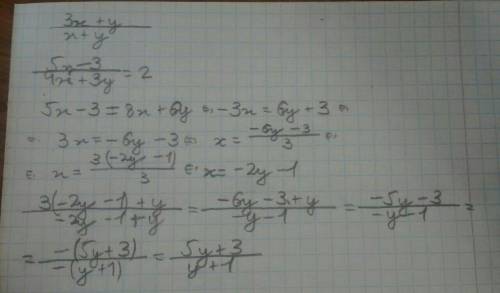 (3x + y)/(x + y)
(5x − 3)/(4x + 3y) = 2
5x − 3 = 8x + 6y ⇔ −3x = 6y + 3 ⇔
⇔ 3x = −6y − 3 ⇔ x = (−6y − 3)/3 ⇔
⇔ x = 3(−2y − 1)/3 ⇔ x = −2y − 1
(3(−2y − 1) + y)/(−2y − 1 + y) = (−6y − 3 + y)/(−y − 1) = (−5y − 3)/(−y − 1) =
= −(5y + 3)/−(y + 1) = (5y + 3)/(y + 1)